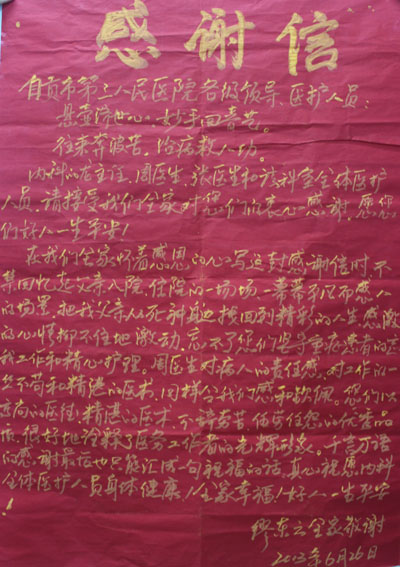 感谢信
自贡市第三人民医院各级领导、医护人员:
悬壶济世心,妙手回春苦。
往来奔波苦,治病救人功。
内科的龙主任、周医生、张医生和该科室全体医护
人员,请接受我们全家对您们的衷心感谢,愿您
们好人一生平安!
在我们全家怀着感恩的心写这封感谢信时,不
禁回忆起父亲入院、住院的一场场一幕幕平凡而感人
的场景,把我父亲从死神身边拽回到精彩的人生,感激
的心情抑不住地激动,忘不了您们坚守在患者的
我工作和精心护理。周医生对病人的责任感,对工作的一
丝不苟和精湛的医术,同样令我们感和钦佩。您们以
高尚的医德,精湛的医术,不辞辛苦、任劳任怨的优秀品
质,很好地诠释了医务工作者的光辉形象。千言万语
的感谢最后也只能汇成一句祝福的话,真心祝愿内科
全体医护人员身体健康!全家幸福!好人一生平安
缪东云全家敬谢
2013年6月26日